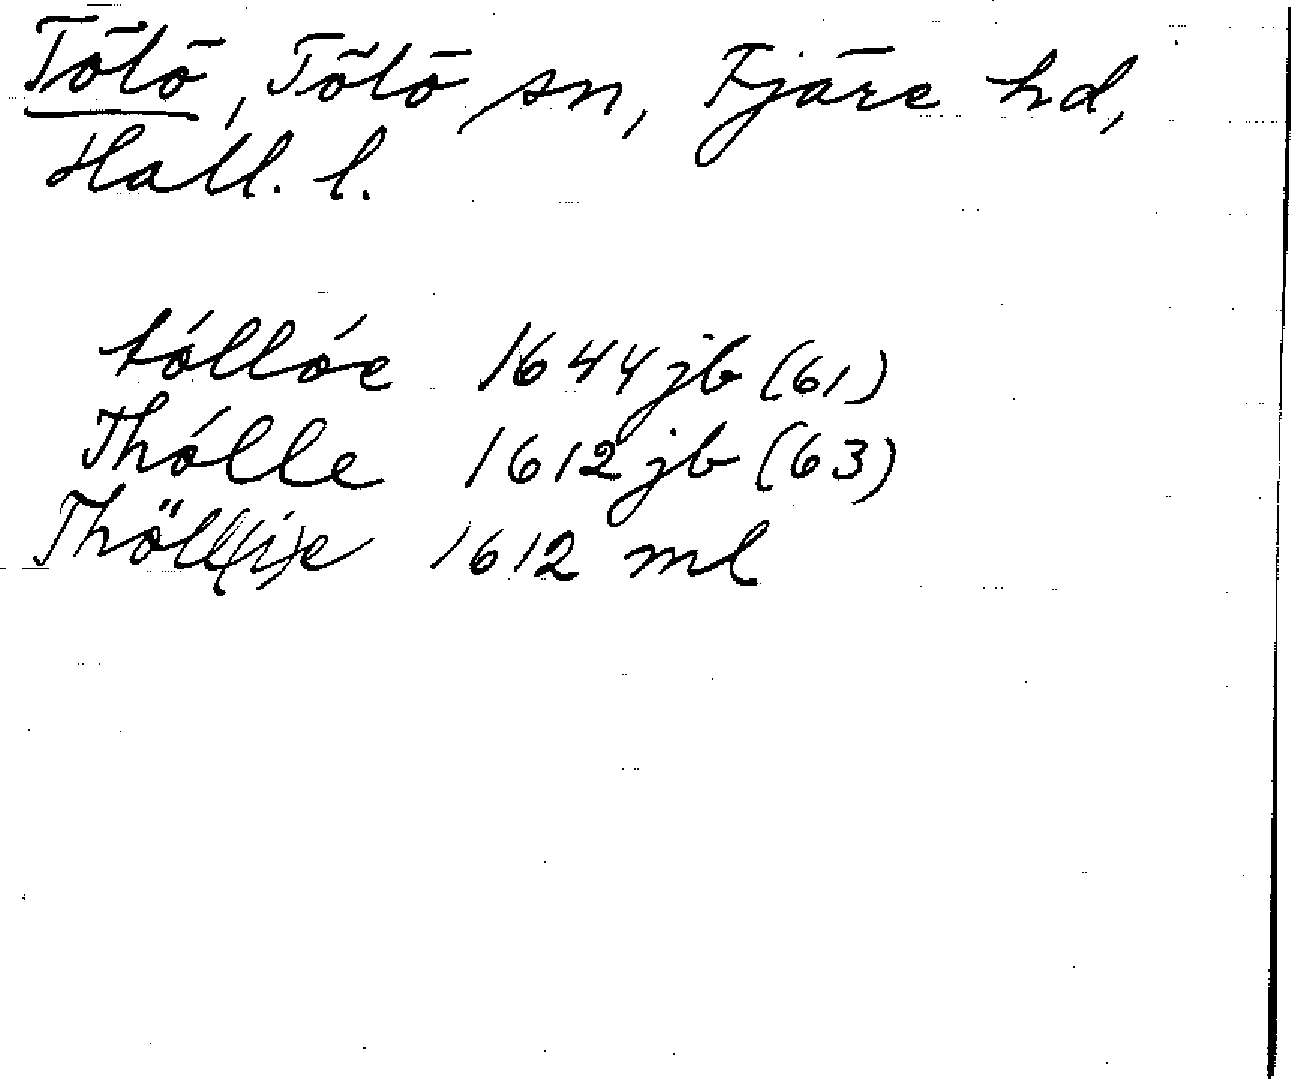 Tölö, Tölö sn, Fjäre hd,
Hall. l.
tóllóe 1644 jb (61)
Thólle 1612 jb (63)
Thöll(i)e 1612 ml